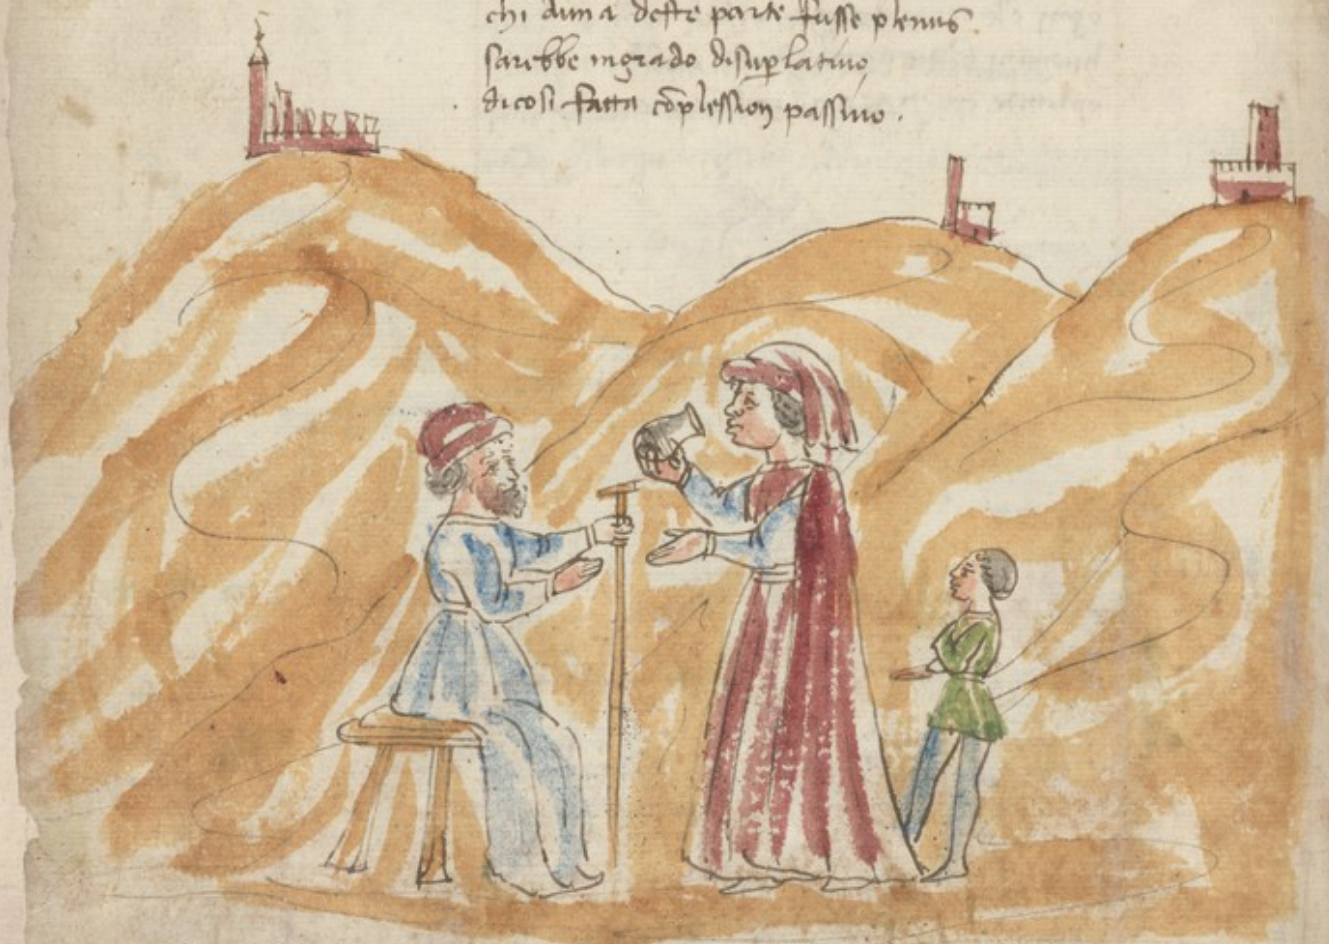 chi auna deste parte fusse plenus
sarebbe ingrado disuplatiuo
dicosi fatta cōplession passiuo .